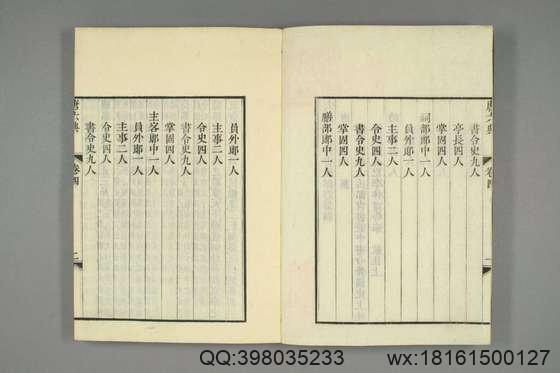 唐六典 卷四
書令史九人
亭長四人
掌固四人
祠部郎中一人
員外郎一人
主事二人
令史四人
書令史九人
掌固四人
膳部郎中一人
員外郎一人
主事二人
令史四人
書令史九人
掌固四人
主客郎中一人
員外郎一人
主事二人
令史四人
書令史九人
唐六典 卷四 二
QQ:398035233 wx:18161500127